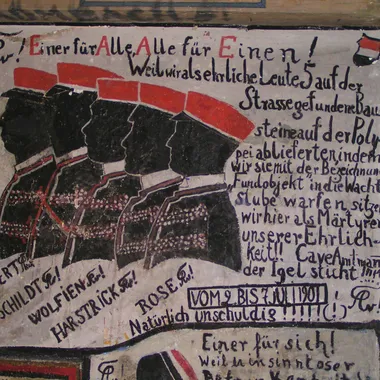 ! Einer für Alle, Alle für Einen!
Weil wir als ehrliche Leute 5 auf der
Strasse gefundene Bau
steine auf der Poly
pei ablieferten indem
wir sie mit der Bezeichnung
Fundobjekt in die Wacht
stube warfen sitzen
wir hier als Märtyrer
unserer Ehrlich-
keit!! Cave Amtmann
der Igel sticht !!!
SCHILDT!
WOLFIEN!
HARSTRICK!
ROSE!
VOM 2. BIS 7. JULI 1901
Natürlich unschuldig !!!!!!(!)
Einer für sich!
Weil ich in sinnloser